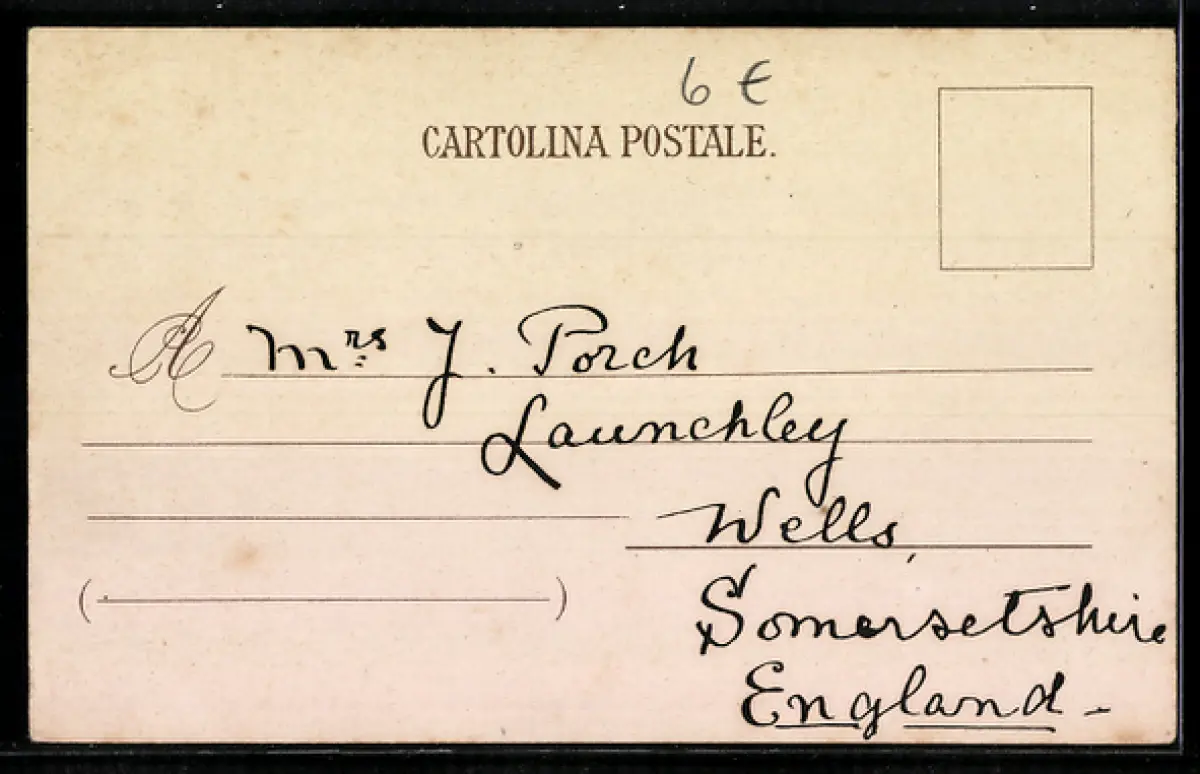 6 €
CARTOLINA POSTALE.
A Mrs J. Porch
Launchley
Wells,
Somersetshire
England -